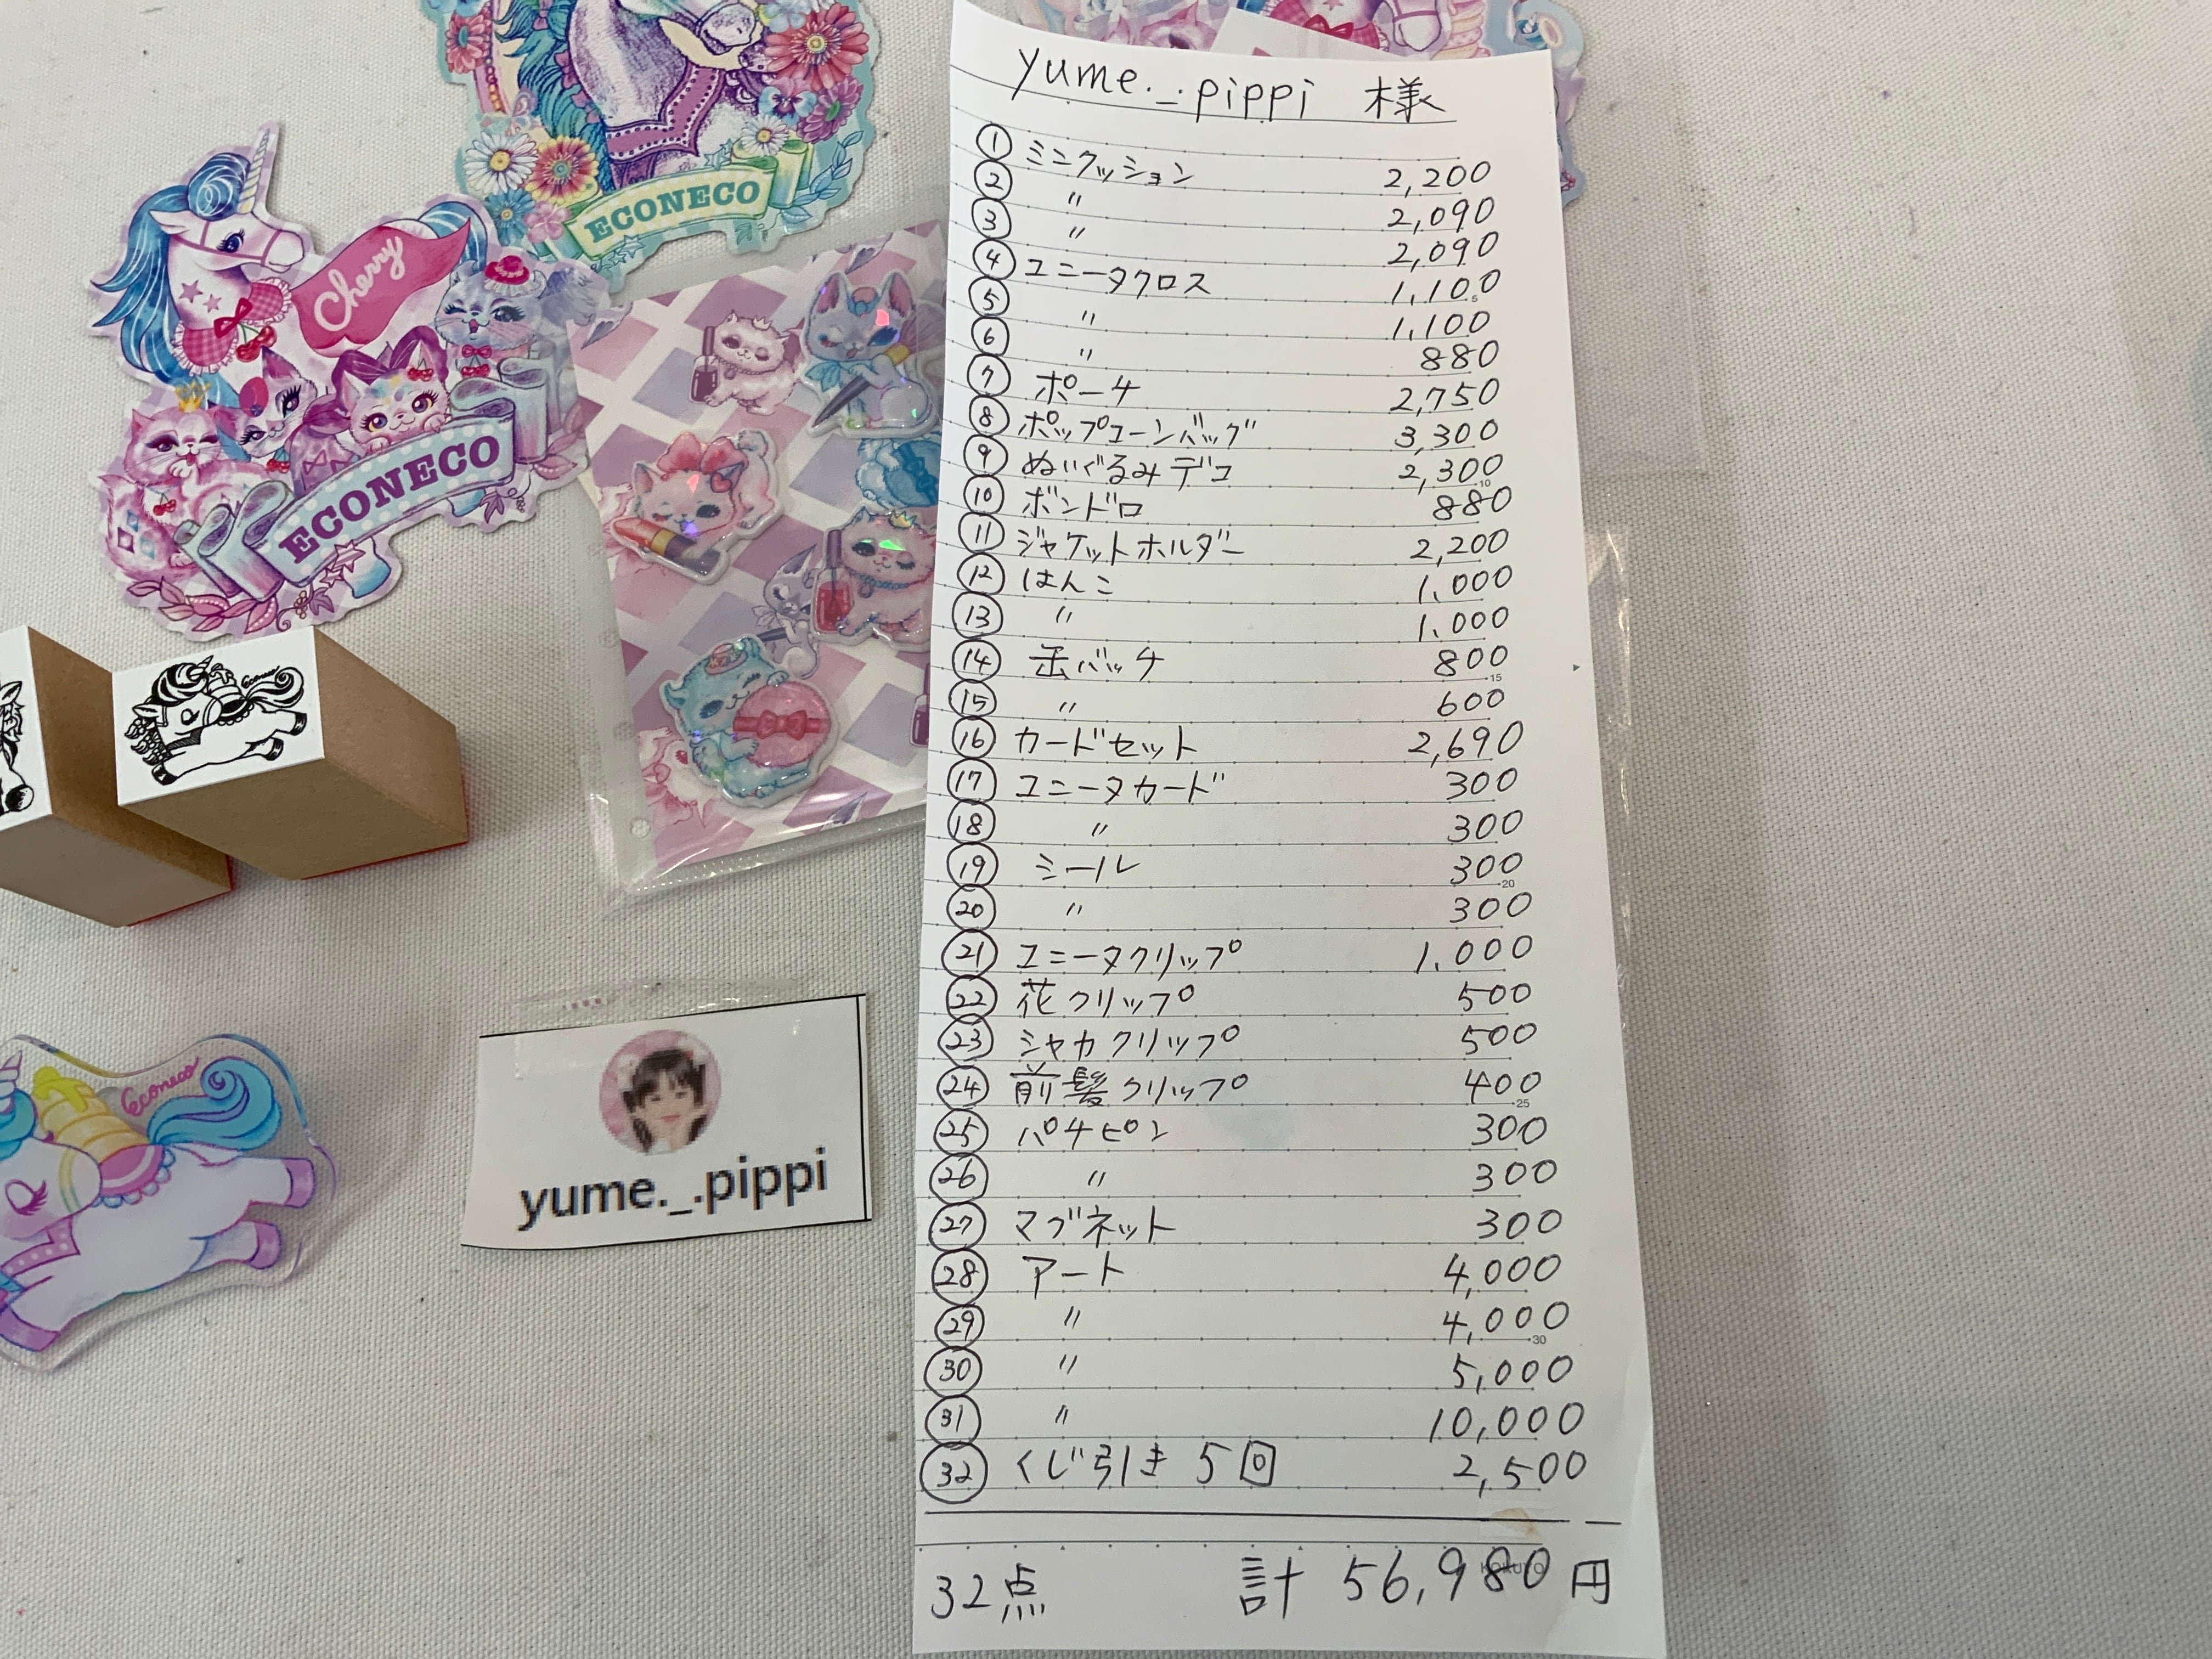 ECONECO
Cherry
ECONECO
econeco
Econeco
yume._.pippi
yume._.pippi 様
① ミニクッション 2,200
② 〃 2,090
③ 〃 2,090
④ ユニータクロス 1,100
⑤ 〃 1,100
⑥ 〃 880
⑦ ポーチ 2,750
⑧ ポップコーンバッグ 3,300
⑨ ぬいぐるみデコ 2,300
⑩ ボンドロ 880
⑪ ジャケットホルダー 2,200
⑫ はんこ 1,000
⑬ 〃 1,000
⑭ 缶バッチ 800
⑮ 〃 600
⑯ カードセット 2,690
⑰ ユニータカード 300
⑱ 〃 300
⑲ シール 300
⑳ 〃 300
㉑ ユニータクリップ 1,000
㉒ 花クリップ 500
㉓ シャカクリップ 500
㉔ 前髪クリップ 400
㉕ パチピン 300
㉖ 〃 300
㉗ マグネット 300
㉘ アート 4,000
㉙ 〃 4,000
㉚ 〃 5,000
㉛ 〃 10,000
㉜ くじ引き 5回 2,500
32点 計 56,980円